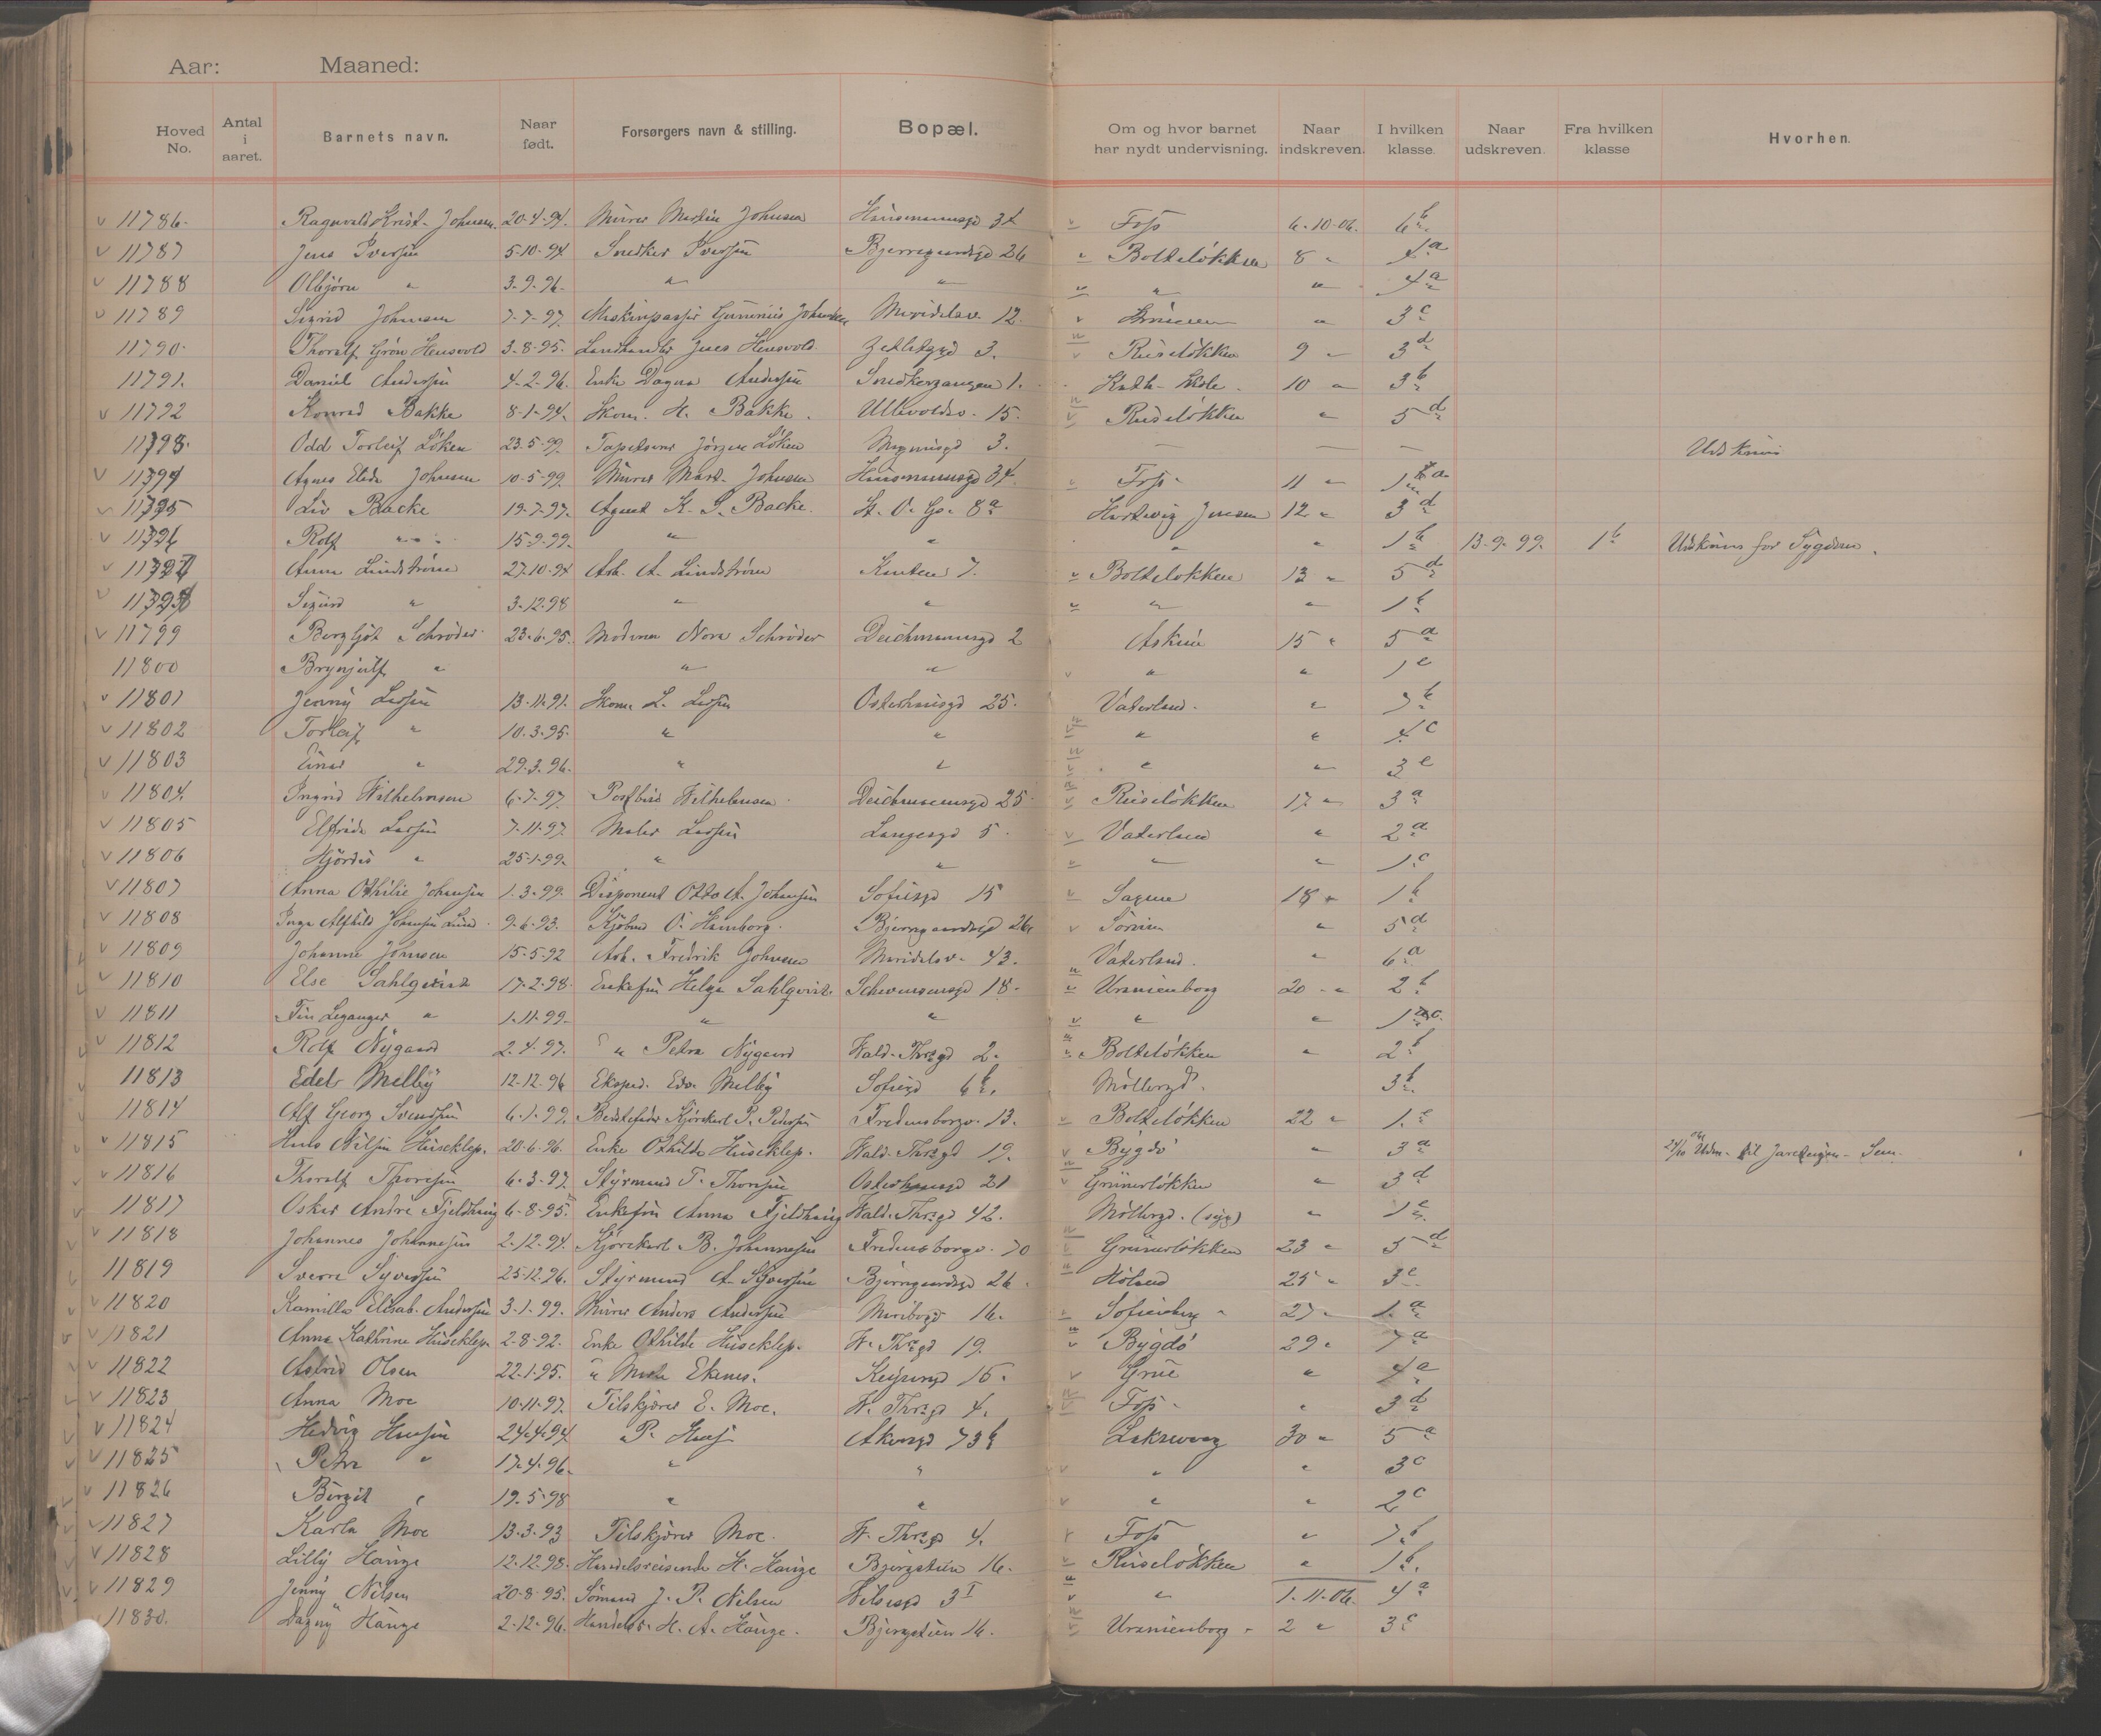 Aar: Maaned:
Hoved No. Antal i aaret. Barnets navn. Naar født. Forsørgers navn & stilling. Bopæl. Om og hvor barnet har nydt undervisning. Naar indskreven. I hvilken klasse. Naar udskreven. Fra hvilken klasse Hvorhen.
v 11786. Ragnvald Krist. Johnsen. 20-4-94. Murer Martin Johnsen Hausmannsgd 34 Foss 6-10-06. 6 b.
v 11787 Jens Iversen 5-10-94 Snedker Iversen Bjerregaardsgd 26 Bolteløkken 8 " 4 a
v 11788 Olbjörn " 3-9-96. " " " " 4 a
v 11789 Sigrid Johnsen 7-7-97. Maskinpasser Johnsen Maridalsv. 12. " 3 c
11790. Thoralf Grön Hensvold 3-8-95. Landhandler Jens Hensvold. 3. v Ruseløkken 9 " 3 d
11791. Daniel Andersen 4-2-96. Enke Dagna Andersen Snedkergangen 1. Kath. Skole. 10 " 3 b
v 11792 Konrad Bakke 8-1-94. Skom. H. Bakke. Ullevoldsv. 15. v Ruseløkken " 5 d
11793. Odd Torleif Löken 23.5-99. Tapetserer Jörgen Löken 3. — — — Udskrives
v 11794 Agnes Johnsen 10-5-99. Murer Mart. Johnsen Hausmannsgd 34. Foss. 11 " 1 a
11795 Liv Backe 19-7-97. Agent K. S. Backe. St. O. G. 8 a Hartvig Jensen 12 " 3 d
v 11796 Rolf " 15-9-99. " " " " 1 b 13-9-99. 1 b Udskrives for Sygdom.
v 11797 Anna Lindström 27-10-94 Arb. A. Lindström 7. Bolteløkken 13 " 5 d
v 11798 Sigurd " 3-12-98 " " " " 1 b
v 11799 Bergljot Schröder 23-6-95. Nora Schröder Deichmannsgd 2 Askim 15 " 5 a
11800 Brynjulf " " " v " " 1 c
v 11801 Jenny Larsen 13-11-91. Skom. L. Larsen Osterhausgd 25. Vaterland. " 7 b
v 11802 Torleif " 10-3-95. " " v " " 4 c
v 11803 Einar " 29-3-96. " " v " " 3 c
v 11804. Ingrid Wilhelmsen 6-7-97. Postbud Wilhelmsen. Deichmannsgd 25 v Ruseløkken 17 " 3 a
v 11805 Elfrida Larsen 7-11-97. Maler Larsen Langesgd 5. v Vaterland " 2 a
v 11806 Hjördis " 25-1-99. " " " " 1 c
v 11807 Anna Othilie Johansen 1-3-99. Disponent Otto A. Johansen Sofiesgd 15 v Sagene 18 " 1 b
v 11808 Inga Alfhild Johansen Lund 9-6-93. Kjöbmd O. Hamborg. Bjerregaardsgd 26 v " 5 d
v 11809 Johanne Johnsen 15-5-92 Arb. Fredrik Johnsen Maridalsv. 43. Vaterland. " 6 a
v 11810 Else Sahlqvist 17-2-98. Enkefru Helga Sahlqvist Schwensensgd 18. Uranienborg 20 " 2 b
v 11811 Finn Leganger " 1-11-99. " " v " " 1 c.
v 11812 Rolf Nygaard 2-4-97. " Petra Nygaard Wald. Thrsgd 2. Bolteløkken " 2 b
11813 Edel Melby 12-12-96 Eksped. Edv. Melby Sofiegd 6 b. Möllergd. 3 b.
11814 Alf Georg Svendsen 6-1-99. Bestefader Kjörekarl P. Pedersen Fredensborgv. 13. Bolteløkken 22 " 1 c
v 11815 Hans Nilsen Huseklep. 20-6-96. Enke Othilde Huseklep. Wald. Thrsgd 19. v Bygdö " 3 a 24/10 06 Udm. til Jarlsbergen. Sem.
v 11816 Thoralf Thoresen 6-3-97. Styrmand T. Thoresen Osterhausgd 21 v Grünerløkken " 3 d
11817 Oskar Andre Fjeldhaug 6-8-95. Enkefru Anna Fjeldhaug Wald. Thrsgd 42. Möllergd. (syg) " 1 c
v 11818 Johannes Johannesen 2-12-94. Kjörekarl B. Johannesen Fredensborgv. 70 Grünerløkken 23 " 5 d
11819 Sverre Syversen 25-12-96. Styrmand A. Syversen Bjerregaardsgd 26. Höland 25 " 3 c
v 11820 Kamilla Elisab. Andersen 3-1-99. Murer Anders Andersen Maribogd 16. Sofienberg 27 " 1 a
v 11821 Anna Kathrine Huseklep 2-8-92. Enke Othilde Huseklep. W. Thrsgd 19. v Bygdö 29 " 7 a
v 11822 Astrid Olsen 22-1-95. " Ekenes. Keysersgd 15. v Grue " 4 a
v 11823 Anna Moe 10-11-97. Tilskjærer E. Moe. W. Thrsgd 4. Foss. " 3 d
v 11824 Hedvig Hansen 24-4-94 P. Hans Akersgd 73 b Laksevaag 30 " 5 a
v 11825 Petra " 17-4-96. " " v " " 3 c
v 11826 Birgit " 19-5-98 " " v " " 2 c
v 11827 Karla Moe 13-3-93 Tilskjærer Moe. W. Thrsgd 4. Foss " 7 b
v 11828 Lilly Hauge 12-12-98. Handelsreisende H. Hauge Bjergstien 16. Ruseløkken " 1 b.
v 11829 Jenny Nilsen 20-8-95. Sömand J. P. Nilsen Wilsesgd 3 I v " 1-11-06. 4 a
11830. Dagny Hauge 2-12-96. Handelsr. H. A. Hauge. Bjergstien 16. Uranienborg 2 " 3 c